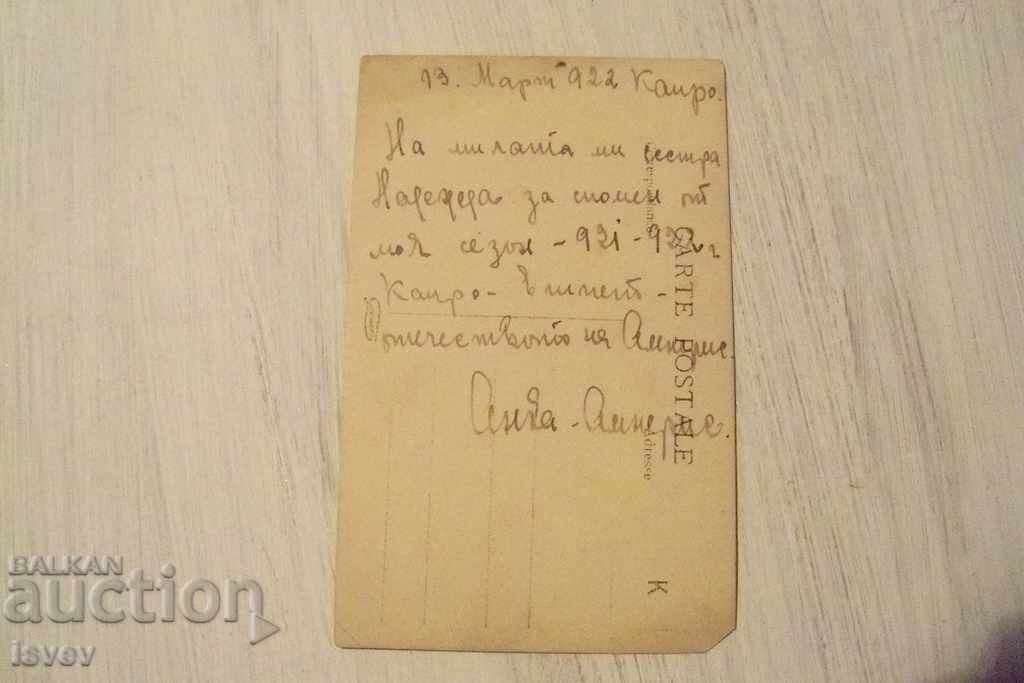 13. Март 922 Каиро.
На милата ми сестра
Надежда за спомен от
моя сезон - 921 - 922 г
Каиро - Египет -
отечеството на Амнерис.
Анка - Амнерис.
CARTE POSTALE
Correspondance
Adresse
K
BALKAN
auction
isvev